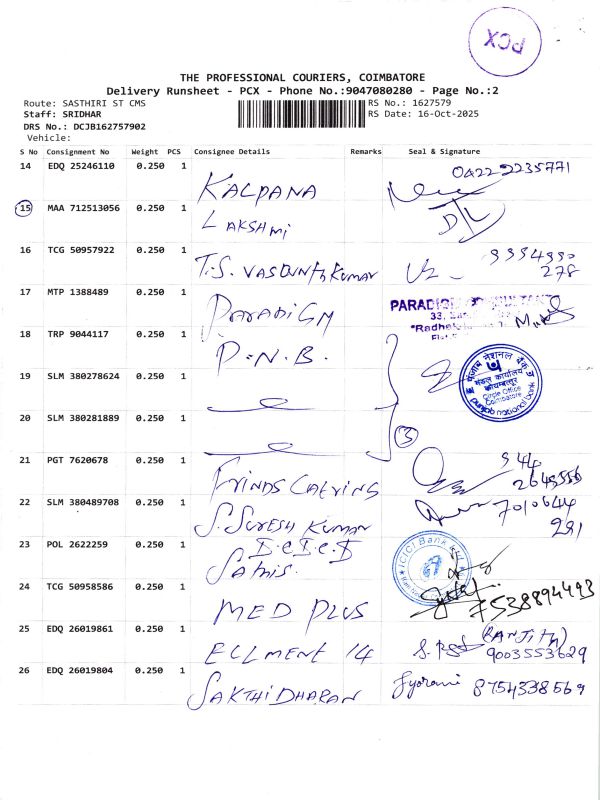 PCX
THE PROFESSIONAL COURIERS, COIMBATORE
Delivery Runsheet - PCX - Phone No.:9047080280 - Page No.:2
Route: SASTHIRI ST CMS
RS No.: 1627579
Staff: SRIDHAR
RS Date: 16-Oct-2025
DRS No.: DCJB162757902
Vehicle:
S No Consignment No Weight PCS Consignee Details Remarks Seal & Signature
14 EDQ 25246110 0.250 1 KALPANA 04222235771
15 MAA 712513056 0.250 1 LAKSHMI DL
16 TCG 50957922 0.250 1 T.S. VASUNTH KUMAR 9994990
278
17 MTP 1388489 0.250 1 PARADIGM PARADIG
33,
"Radhe
18 TRP 9044117 0.250 1 P.N.B.
पंजाब नेशनल बैंक
मंडल कार्यालय
कोयम्बत्तूर
Circle Office
Coimbatore
punjab national bank
19 SLM 380278624 0.250 1
20 SLM 380281889 0.250 1 3
21 PGT 7620678 0.250 1 FRINDS CATRING 944
2645556
22 SLM 380489708 0.250 1 S. SURESH KUMAR 7010644
291
23 POL 2622259 0.250 1 I.C.I.C.I ICICI Bank
SATHIS.
24 TCG 50958586 0.250 1 MED PLUS 7538894493
25 EDQ 26019861 0.250 1 ELLMENT 14 (RANJITH)
9003553629
26 EDQ 26019804 0.250 1 SAKTHIDHARAN 8754338569